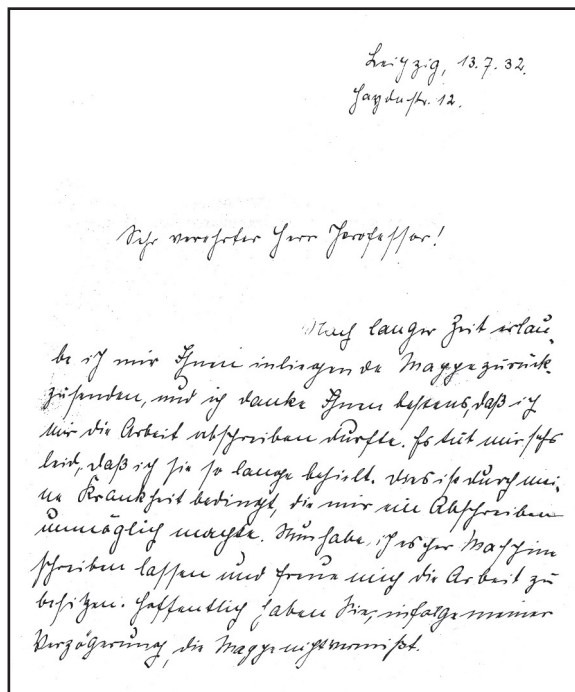 Leipzig, 13.7.32.
Haydnstr. 12.
Sehr verehrter Herr Professor!
Nach langer Zeit erlau-
be ich mir Ihnen inliegende Mappe zurück-
zusenden, und ich danke Ihnen bestens, daß ich
mir die Arbeit abschreiben durfte. Es tut mir sehr
leid, daß ich sie so lange behielt. Dies ist durch mei-
ne Krankheit bedingt, die mir ein Abschreiben
unmöglich machte. Nun habe ich es per Maschine
schreiben lassen und freue mich die Arbeit zu
besitzen. Hoffentlich haben Sie, infolge meiner
Verzögerung, die Mappe nicht vermißt.